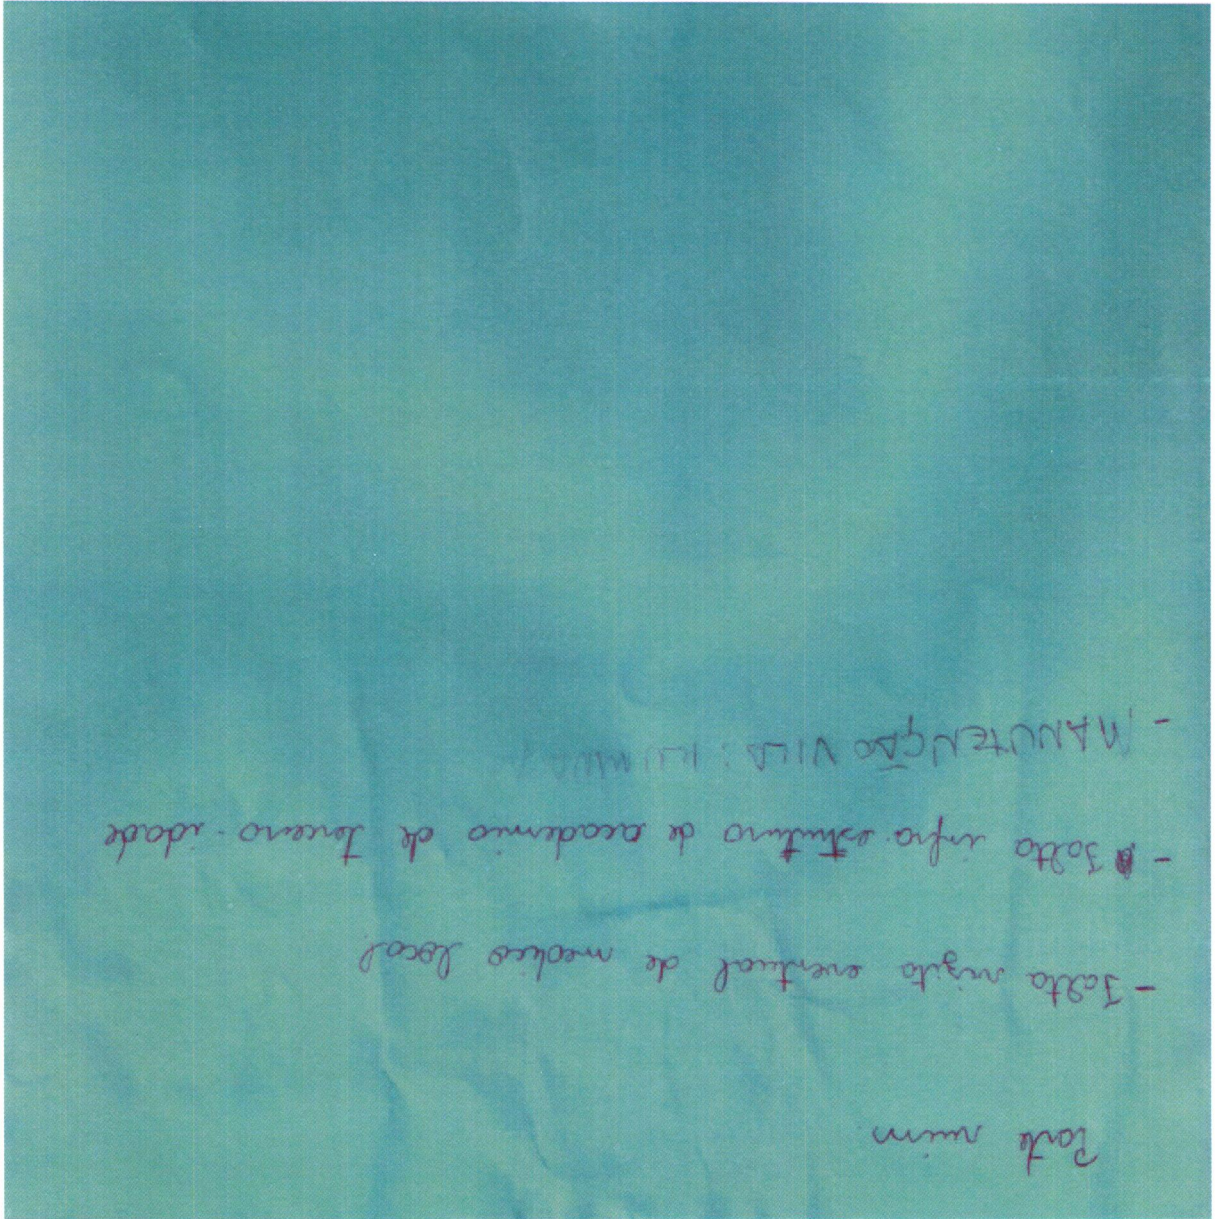 Parte ruim
- Falta vizita eventual de medico local
- Falta infra-estrutura de academia de terceira-idade
- MANUTENÇÃO VILA: